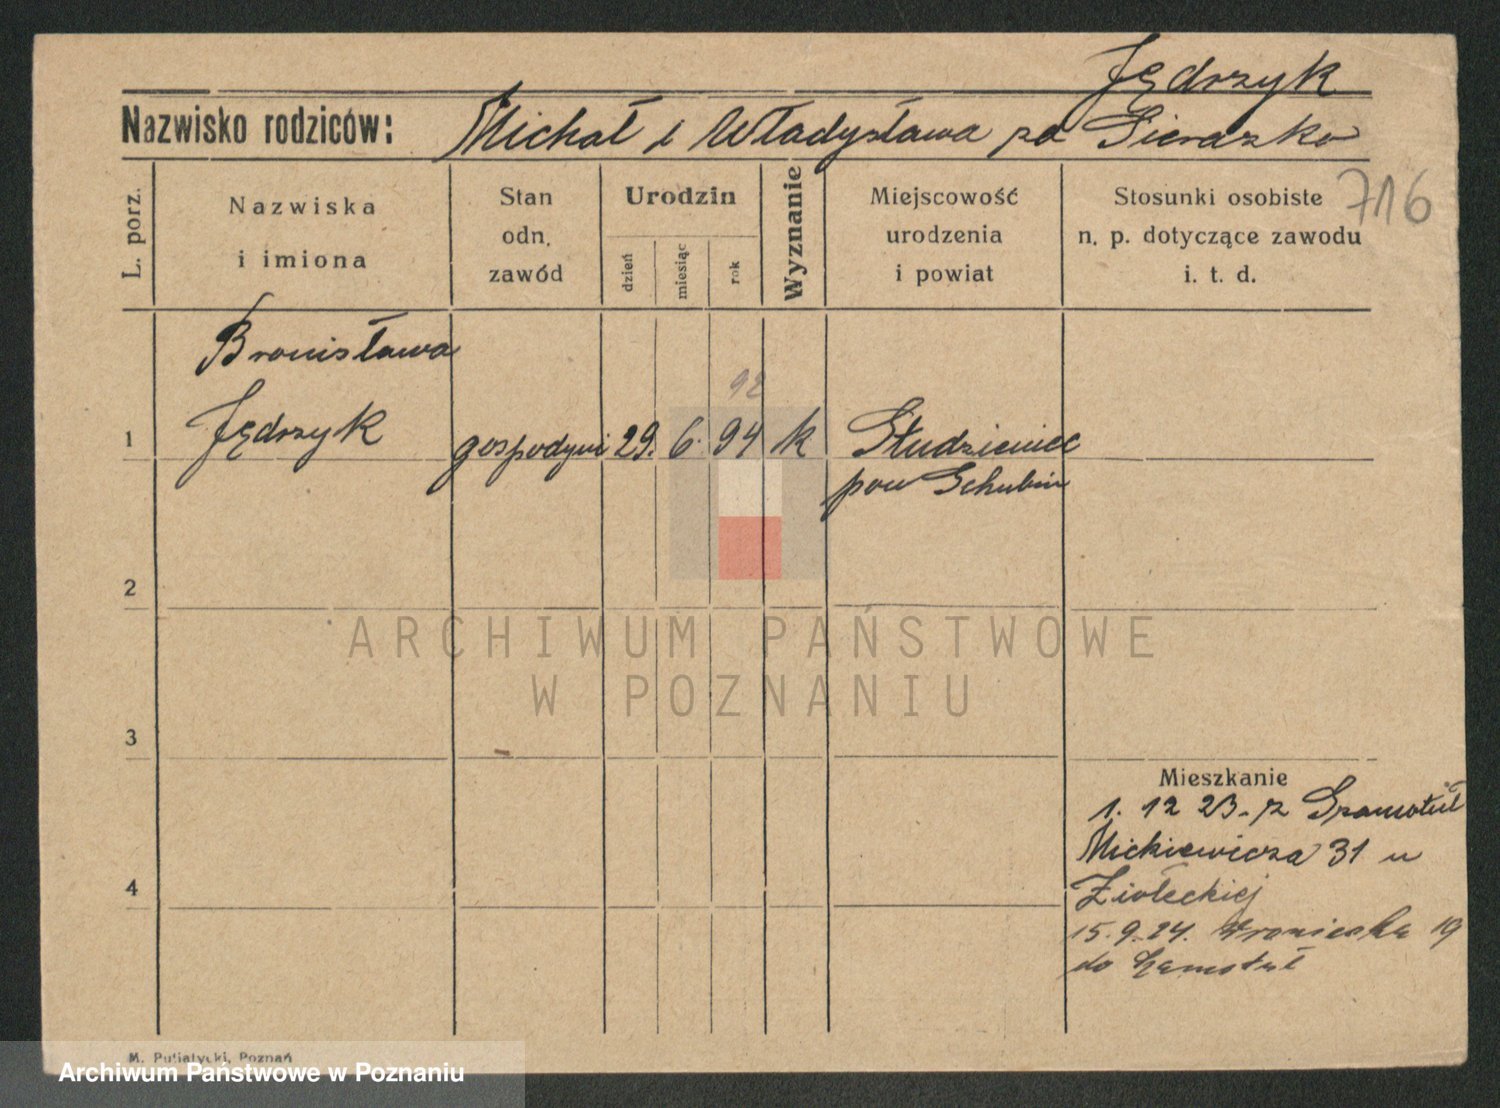 Jędrzyk
Nazwisko rodziców: Michał i Władysława zd Sieraszko
716
L. porz.
Nazwiska
i imiona
Stan
odn.
zawód
Urodzin
dzień
miesiąc
rok
Wyznanie
Miejscowość
urodzenia
i powiat
Stosunki osobiste
n. p. dotyczące zawodu
i. t. d.
Bronisława
92
1 Jędrzyk gospodyni 29. 6. 94 k Studzieniec
pow Schubin
2
ARCHIWUM PAŃSTWOWE
W POZNANIU
3
Mieszkanie
1. 12 23. z Szamotuł
Mickiewicza 31 u
4
Ziołeckiej
15. 9. 24. 19
do
M. Putiatycki, Poznań
Archiwum Państwowe w Poznaniu